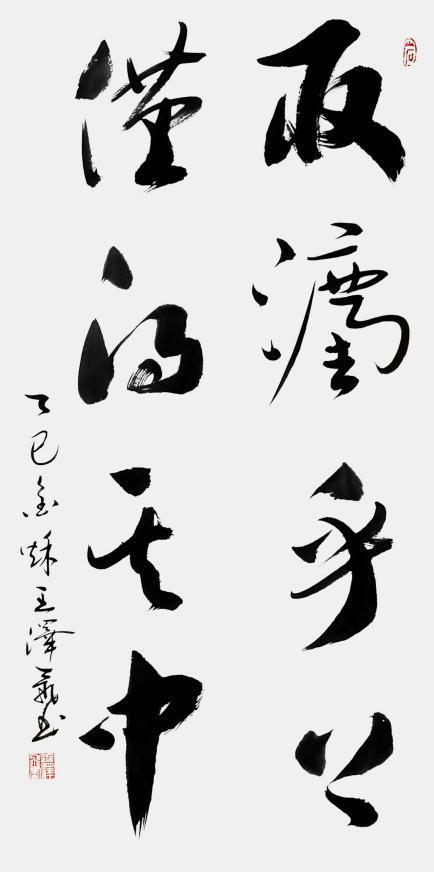 取灋乎上
僅得其中
乙巳金秋王澤書